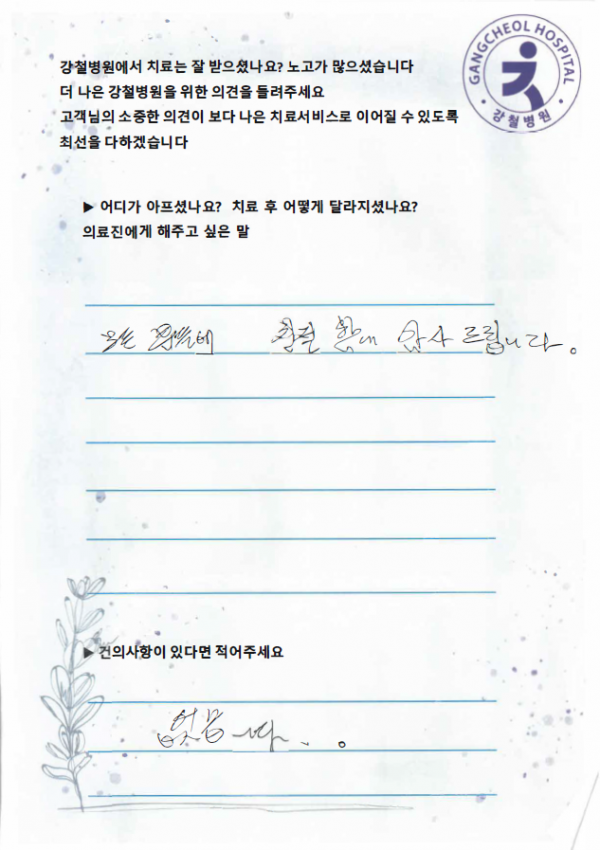 GANGCHEOL HOSPITAL
강철병원
강철병원에서 치료는 잘 받으셨나요? 노고가 많으셨습니다
더 나은 강철병원을 위한 의견을 들려주세요
고객님의 소중한 의견이 보다 나은 치료서비스로 이어질 수 있도록
최선을 다하겠습니다
▶ 어디가 아프셨나요? 치료 후 어떻게 달라지셨나요?
의료진에게 해주고 싶은 말
친절 감사 드립니다.
▶ 건의사항이 있다면 적어주세요
없습니다.